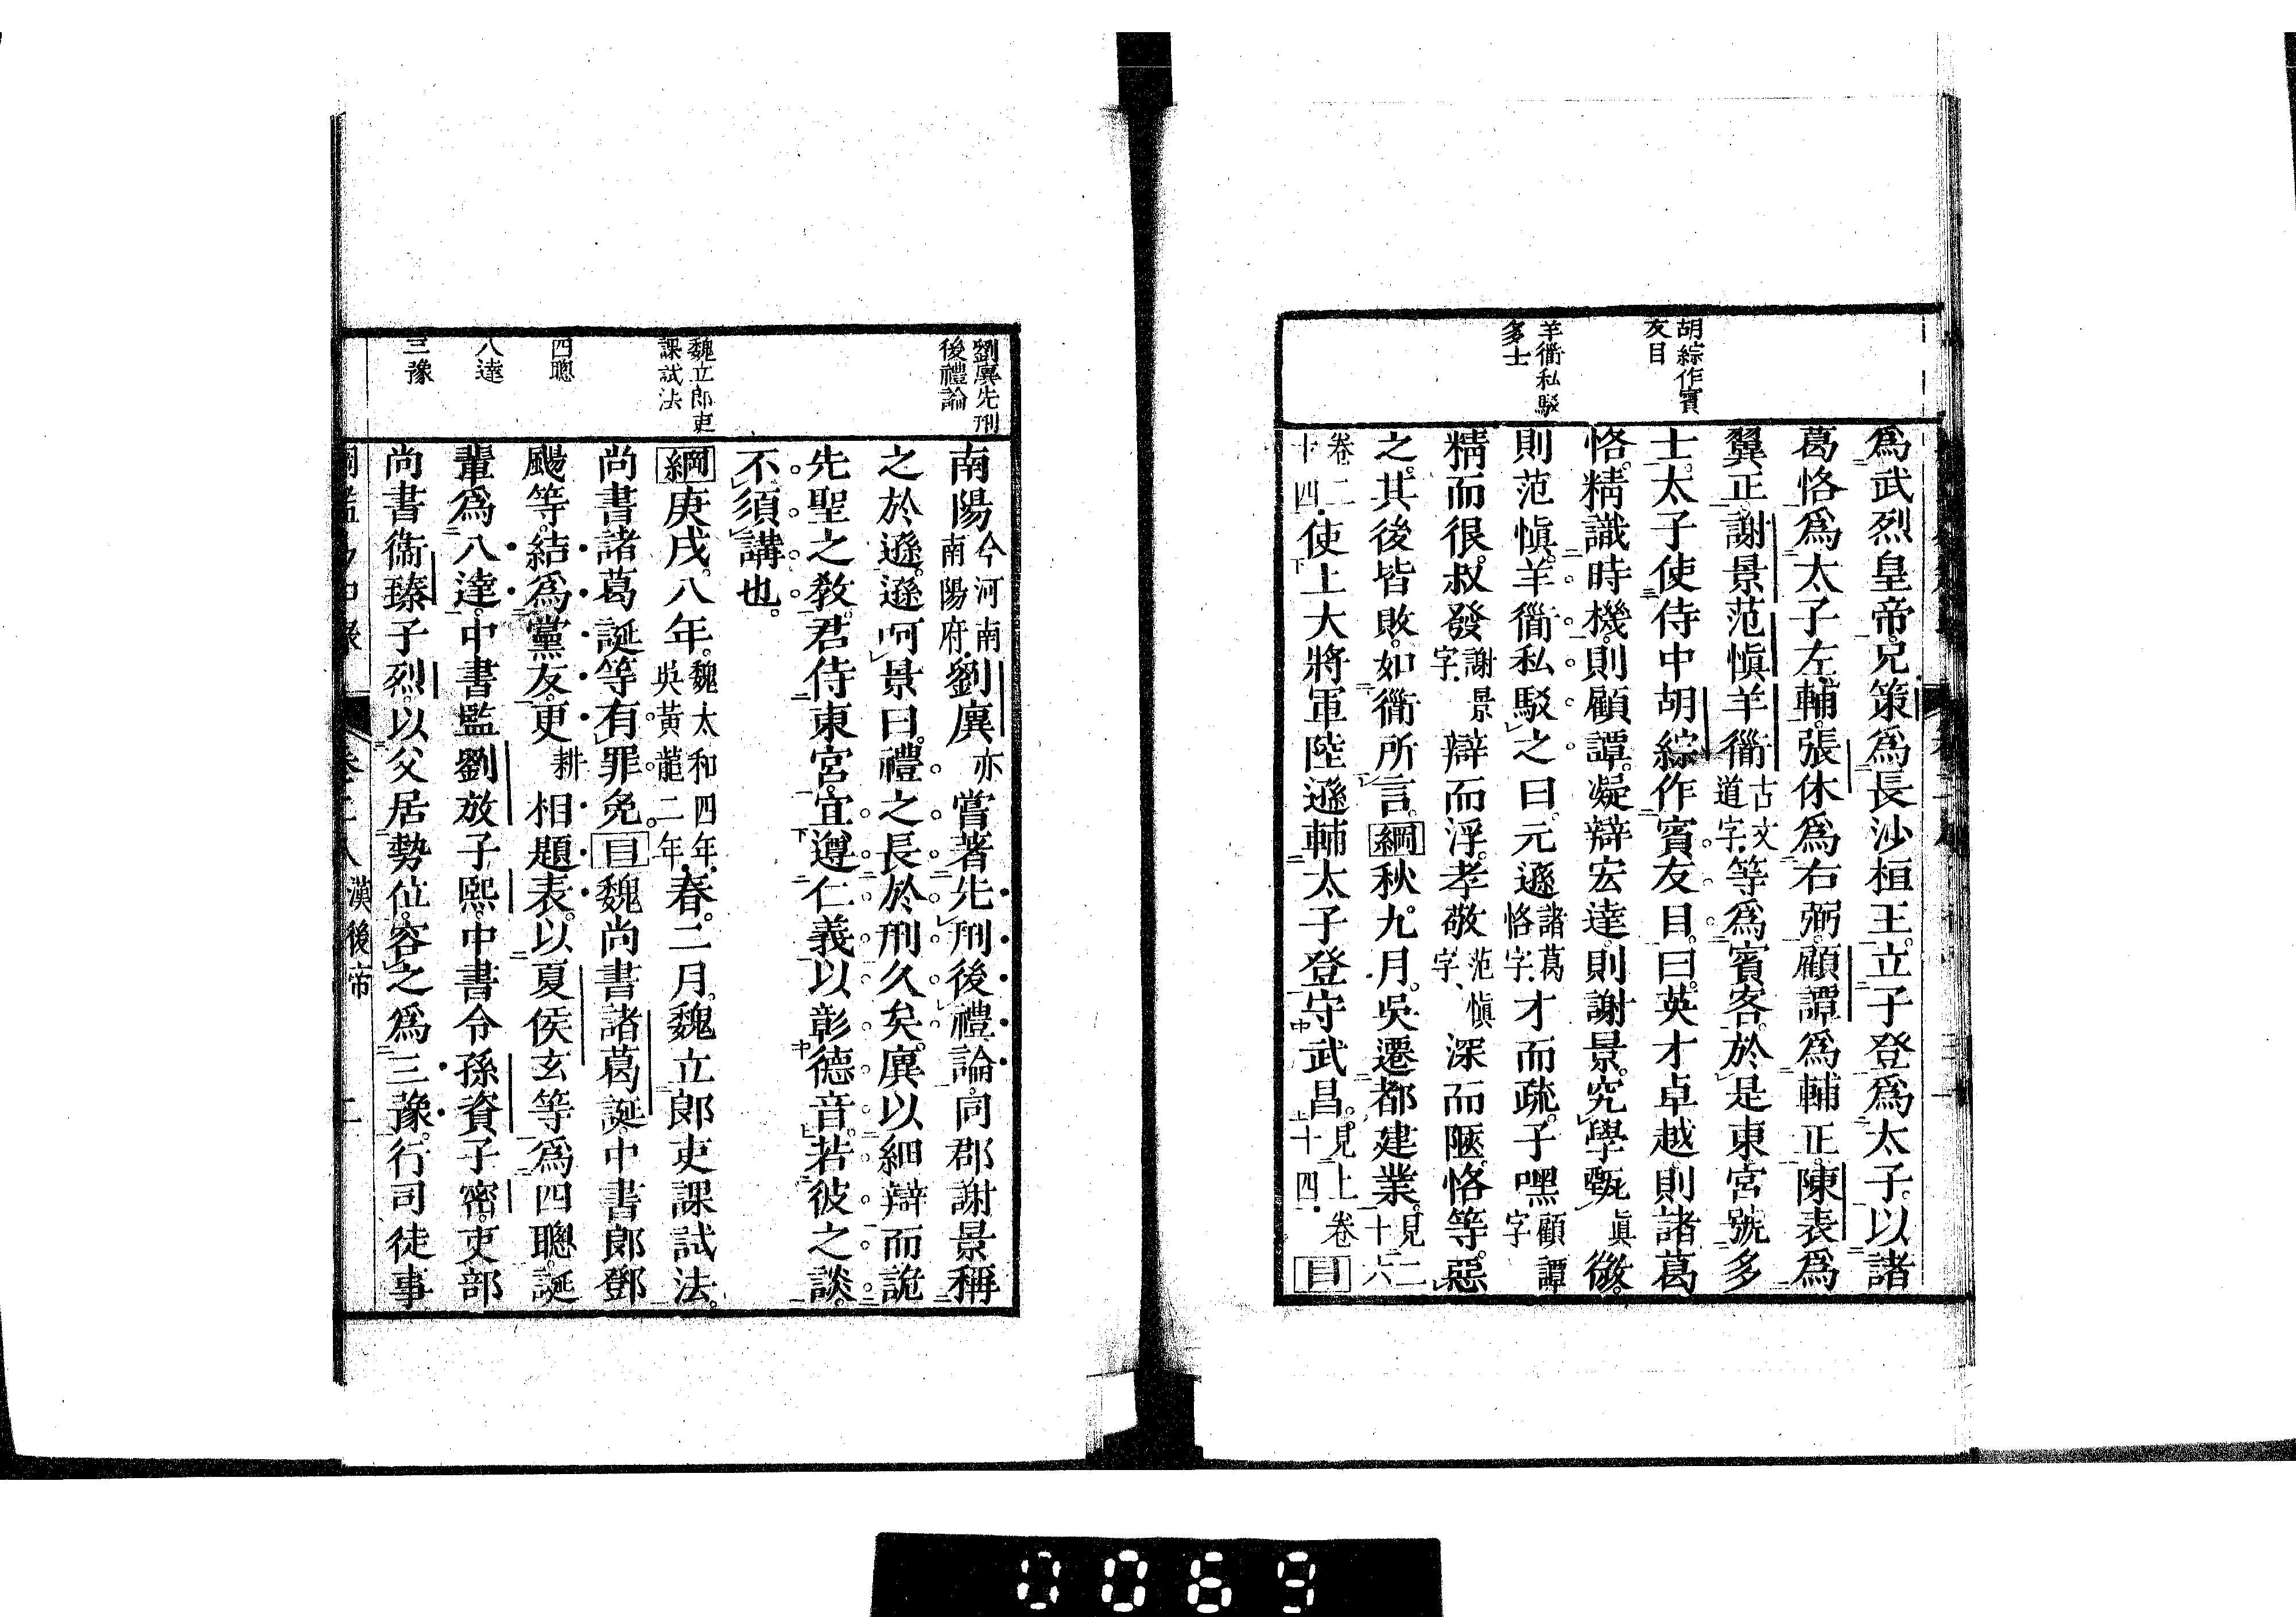 胡綜作賓
友目
羊衜私駁
多士
爲武烈皇帝。兄策爲長沙桓王。立子登爲太子。以諸
葛恪爲太子左輔。張休爲右弼。顧譚爲輔正。陳表爲
翼正。謝景范愼羊衜古文道字等爲賓客。於是東宮號多
士。太子使侍中胡綜作賓友目。曰。英才卓越。則諸葛
恪。精識時機。則顧譚。凝辯宏達。則謝景。究學甄眞微。
則范愼。羊衜私駁之曰。元遜諸葛恪字才而疏。子嘿顧譚字
精而很。叔發謝景字辯而浮。孝敬范愼字深而陿。恪等惡
之。其後皆敗。如衜所言。綱秋九月。吳遷都建業。見二十六
卷二十四使上大將軍陸遜輔太子登守武昌。見上卷十四目
劉廙先刑
後禮論
魏立郎吏
課試法
四聰
八達
三豫
南陽今河南南陽府劉廙亦嘗著先刑後禮論。同郡謝景稱
之於遜。遜呵景曰。禮之長於刑久矣。廙以細辯而詭
先聖之敎。君侍東宮。宜遵仁義以彰德音。若彼之談。
不須講也。
綱庚戌。八年。魏太和四年吳黃龍二年春。二月。魏立郎吏課試法。
尚書諸葛誕等有罪免。目魏尚書諸葛誕。中書郎鄧
颺等。結爲黨友。更耕相題表。以夏侯玄等爲四聰。誕
輩爲八達。中書監劉放子熙。中書令孫資子密。吏部
尚書衞臻子烈。以父居勢位。容之爲三豫。行司徒事
漢後帝